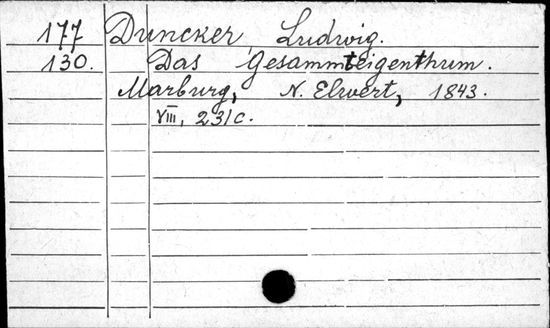 177 Duncker, Ludwig.
130. Das Gesammteigenthum.
Marburg, N. Elwert, 1843.
VIII, 231 c.